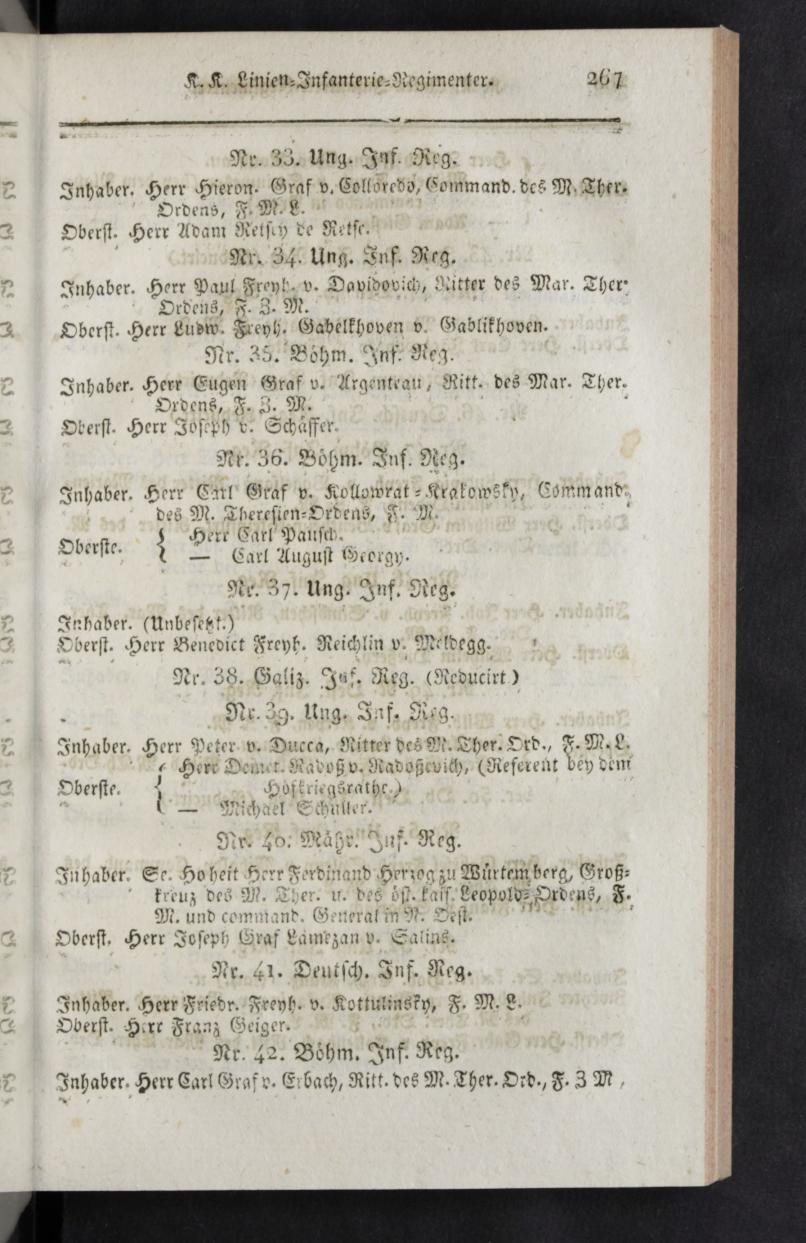 K. K. Linien-Infanterie-Regimenter. 267
Nr. 33. Ung. Inf. Reg.
Inhaber. Herr Hieron. Graf v. Colloredo, Command. des M. Ther.
Ordens, F. M. L.
Oberst. Herr Adam Retsey de Retse.
Nr. 34. Ung. Inf. Reg.
Inhaber. Herr Paul Freyh. v. Davidovich, Ritter des Mar. Ther.
Ordens, F. Z. M.
Oberst. Herr Ludw. Freyh. Gabelkhoven v. Gablikhoven.
Nr. 35. Böhm. Inf. Reg.
Inhaber. Herr Eugen Graf v. Argenteau, Ritt. des Mar. Ther.
Ordens, F. Z. M.
Oberst. Herr Joseph v. Schäffer.
Nr. 36. Böhm. Inf. Reg.
Inhaber. Herr Carl Graf v. Kollowrat-Krakowsky, Command.
des M. Theresien-Ordens, F. M.
Oberste. { Herr Carl Pausch.
— Carl August Georgy.
Nr. 37. Ung. Inf. Reg.
Inhaber. (Unbesetzt.)
Oberst. Herr Benedict Freyh. Reichlin v. Meldegg.
Nr. 38. Galiz. Inf. Reg. (Reducirt)
Nr. 39. Ung. Inf. Reg.
Inhaber. Herr Peter v. Ducca, Ritter des M. Ther. Ord., F. M. L.
Herr Demet. Radoß v. Radoßevich, (Referent bey dem
Oberste. { Hofkriegsrathe.)
— Michael Schuller.
Nr. 40. Mähr. Inf. Reg.
Inhaber. Se. Hoheit Herr Ferdinand Herzog zu Würtemberg, Groß-
kreuz des M. Ther. u. des öst. kais. Leopold-Ordens, F.
M. und command. General in N. Oest.
Oberst. Herr Joseph Graf Lamezan v. Salins.
Nr. 41. Deutsch. Inf. Reg.
Inhaber. Herr Friedr. Freyh. v. Kottulinsky, F. M. L.
Oberst. Herr Franz Geiger.
Nr. 42. Böhm. Inf. Reg.
Inhaber. Herr Carl Graf v. Erbach, Ritt. des M. Ther. Ord., F. Z M.